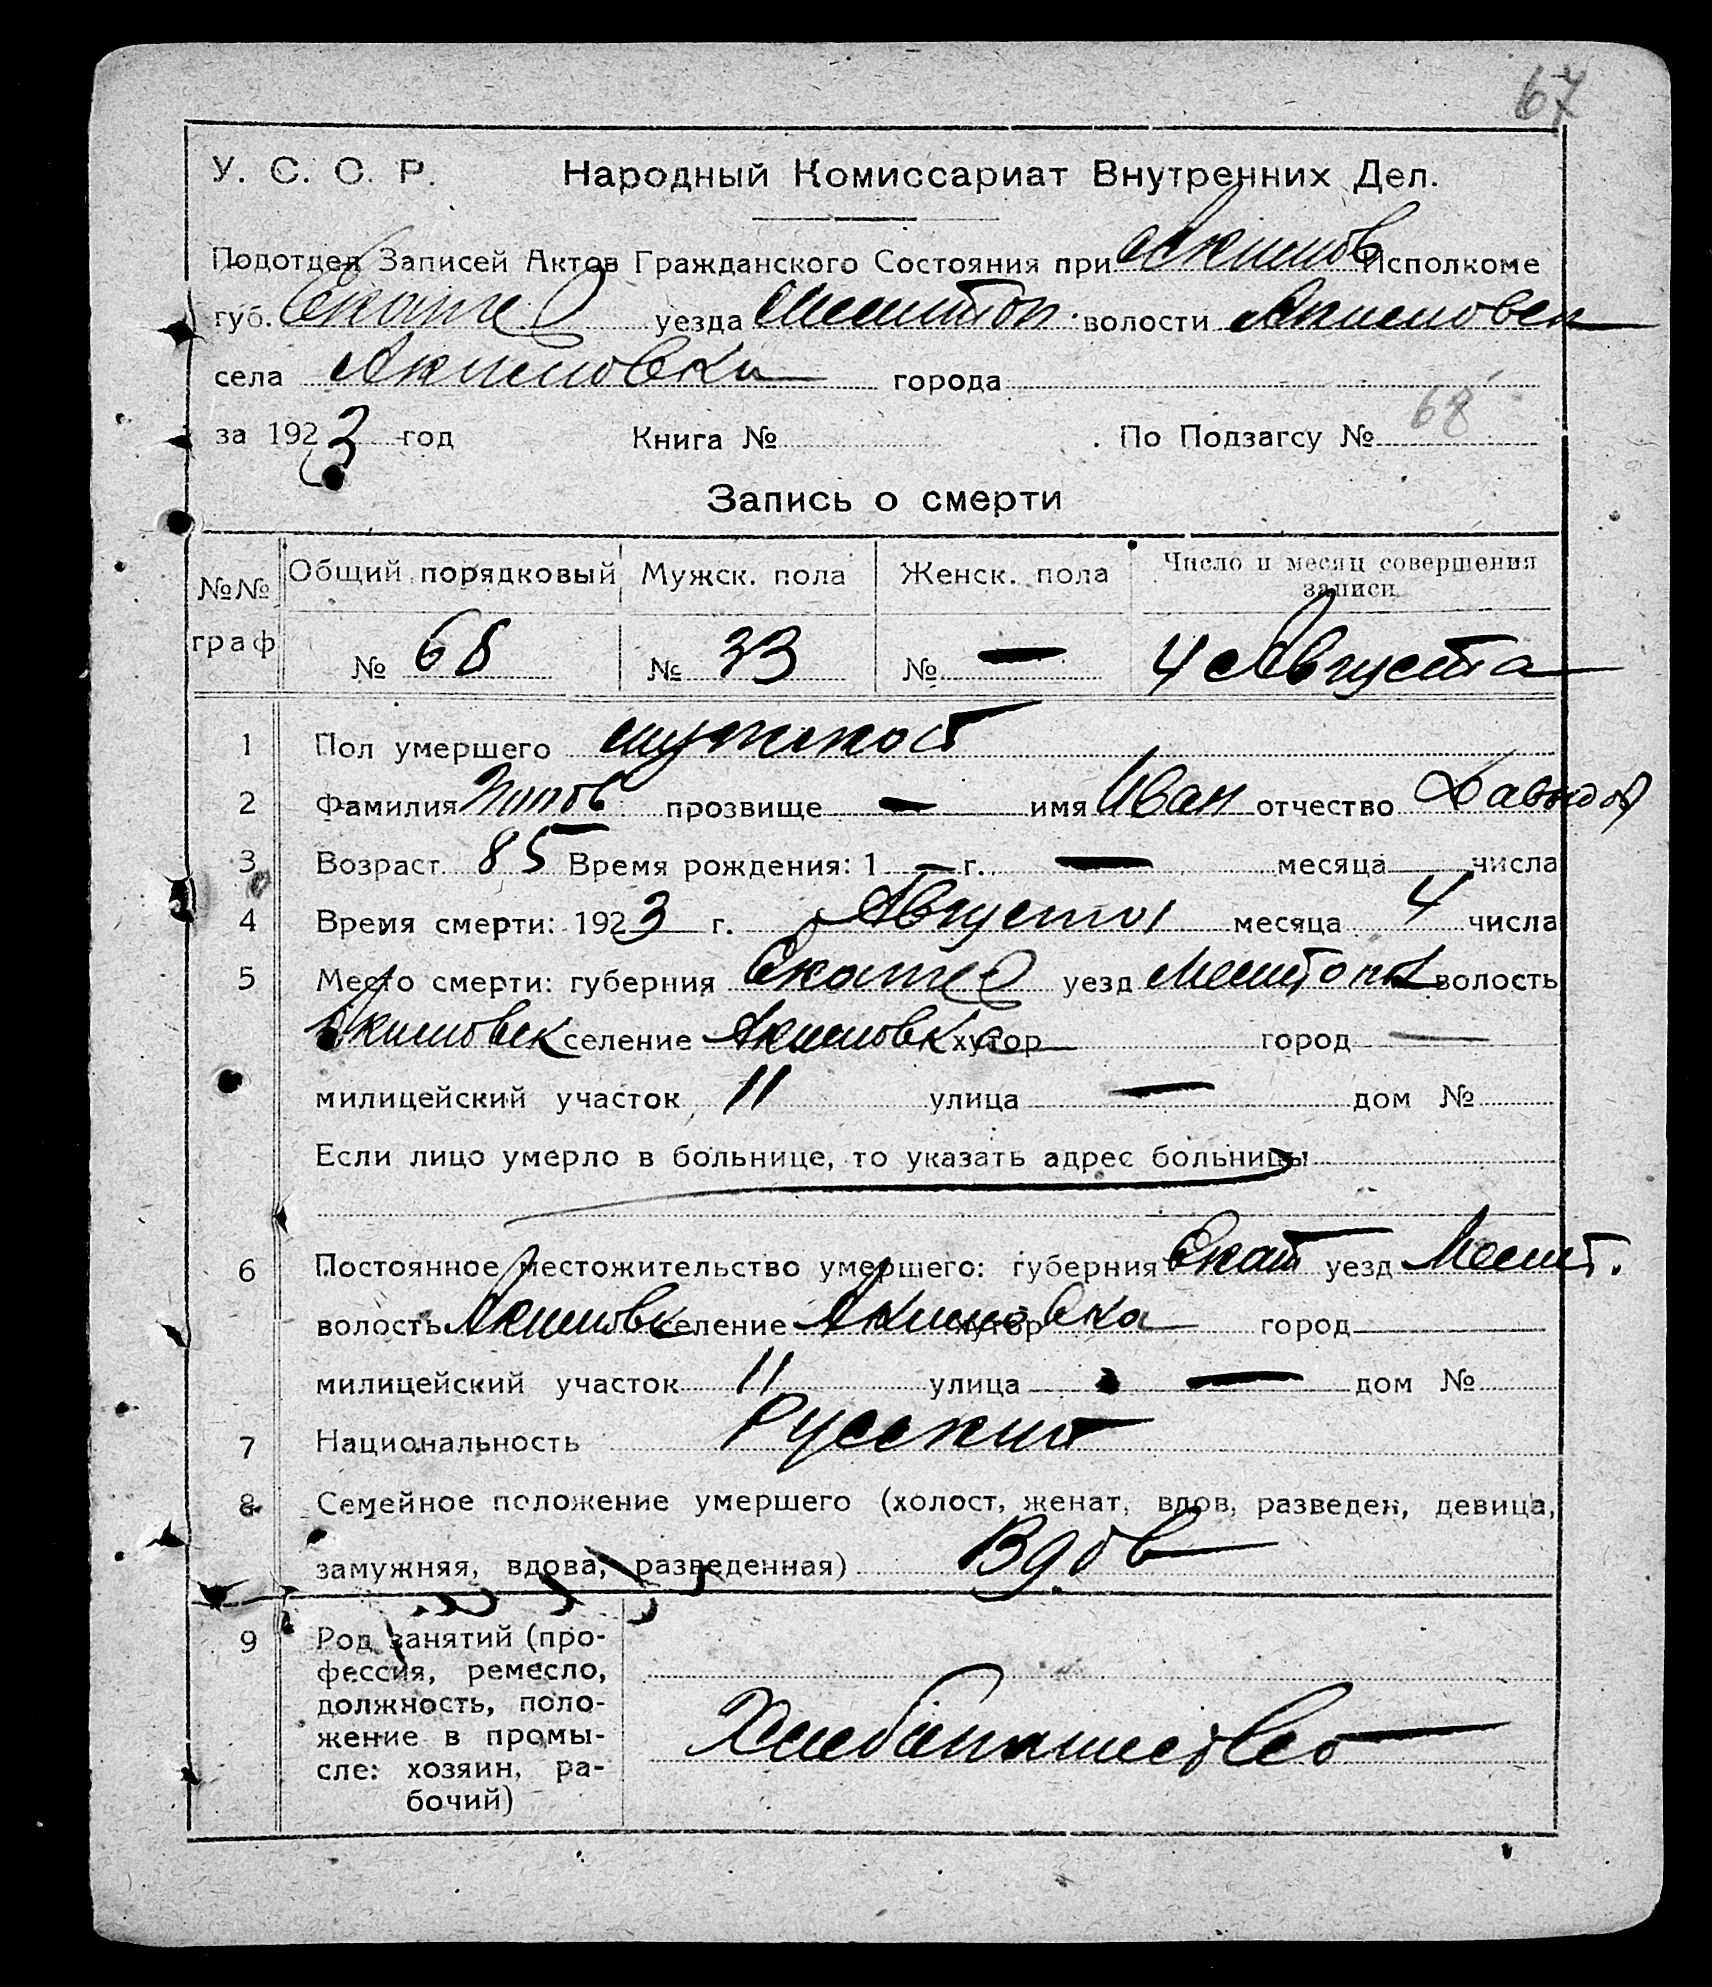 67
У. С. С. Р. Народный Комиссариат Внутренних Дел.
Подотдел Записей Актов Гражданского Состояния при Акимов Исполкоме
губ. Екате уезда Мелитоп. волости Акимовск
села Акимовки города
за 1923 год Книга № По Подзагсу № 68
Запись о смерти
№№ граф Общий порядковый Мужск. пола Женск. пола Число и месяц совершения записи
№ 68 № 33 № — 4 Августа
1 Пол умершего мужской
2 Фамилия прозвище — имя Иван отчество Давыдов
3 Возраст 85 Время рождения: 1 — г. — месяца числа
4 Время смерти: 1923 г. Августа месяца 4 числа
5 Место смерти: губерния Екате уезд Мелитопол волость
Акимовск селение Акимовка хутор город —
милицейский участок 11 улица — дом №
Если лицо умерло в больнице, то указать адрес больницы
6 Постоянное местожительство умершего: губерния Екат уезд Мелит.
волость Акимовск селение Акимовка хутор город
милицейский участок 11 улица — дом №
7 Национальность Русский
8 Семейное положение умершего (холост, женат, вдов, разведен, девица,
замужняя, вдова, разведенная) Вдов
9 Род занятий (про-
фессия, ремесло,
должность, поло-
жение в промы-
сле: хозяин, ра-
бочий)
Хлебопашество